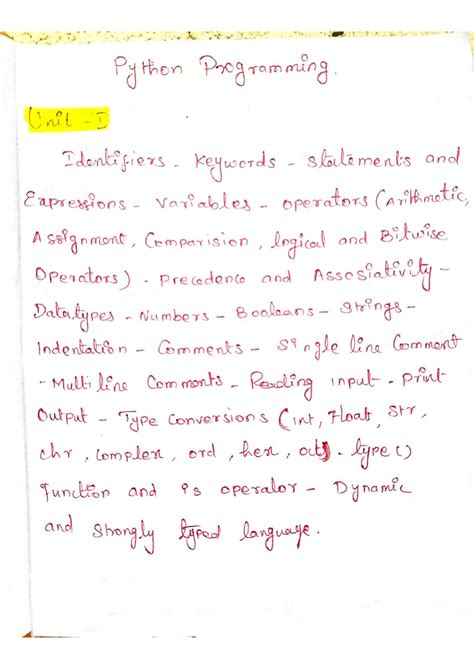 Python Programming.
Unit - I
Identifiers - Keywords - statements and
Expressions - Variables - operators (Arithmetic,
Assignment, Comparision, logical and Bitwise
Operators) - Precedence and Assosiativity -
Data types - Numbers - Booleans - Strings -
Indentation - Comments - Single line Comment
- Multi line Comments - Reading input - Print
Output - Type Conversions (int, Float, Str,
chr, complex, ord, hex, oct) - type ()
Function and is operator - Dynamic
and strongly typed language.